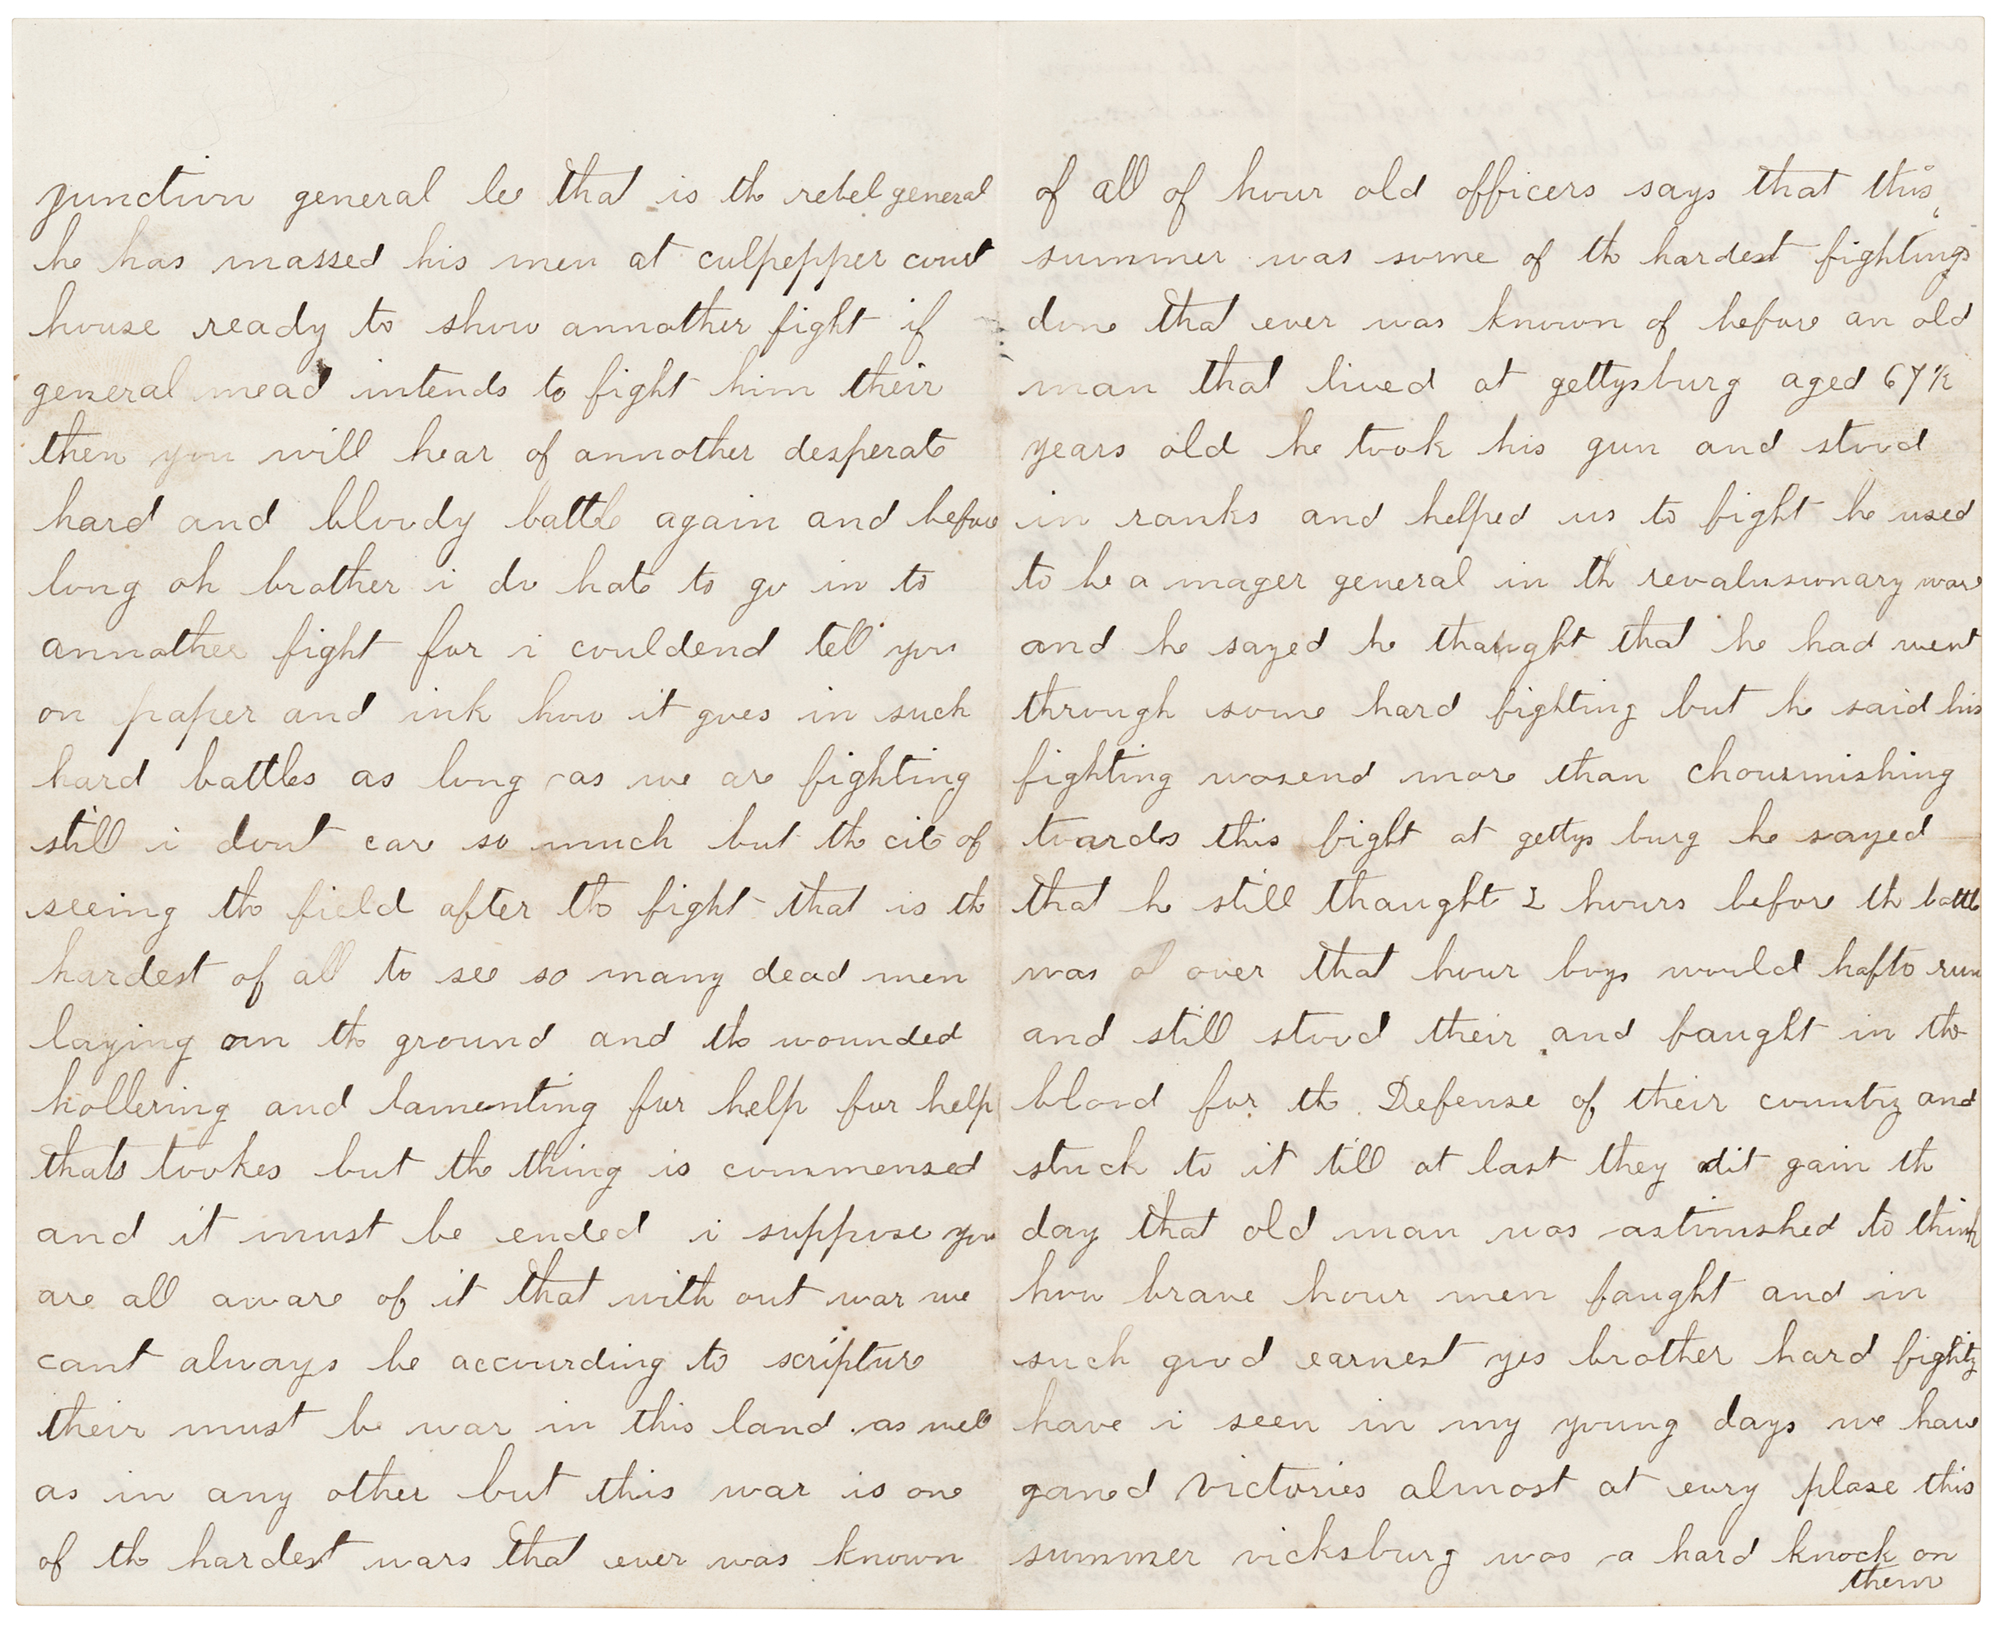 junction general lee that is the rebel general
he has massed his men at culpepper court
house ready to show annother fight if
general mead intends to fight him their
then you will hear of annother desperate
hard and bloody battle again and before
long oh brother i do hate to go in to
annother fight for i couldend tell you
on paper and ink how it goes in such
hard battles as long as we are fighting
still i dont care so much but the cite of
seeing the field after the fight that is the
hardest of all to see so many dead men
laying on the ground and the wounded
hollering and lamenting for help for help
thats tookes but the thing is commensed
and it must be ended i suppose you
are all aware of it that with out war we
cant always be accourding to scripture
their must be war in this land as well
as in any other but this war is one
of the hardest wars that ever was known
of all of hour old officers says that this
summer was some of the hardest fightings
done that ever was known of before an old
man that lived at gettysburg aged 67½
years old he took his gun and stood
in ranks and helped us to fight he used
to be a mager general in the revalusionary war
and he sayed he thaught that he had went
through some hard fighting but he said his
fighting wasend more than chourmishing
towards this fight at gettys burg he sayed
that he still thaught 2 hours before the battle
was al over that hour boys would hafto run
and still stood their and faught in the
blood for the Defense of their country and
stuck to it till at last they dit gain the
day that old man was astonished to think
how brave hour men faught and in
such good earnest yes brother hard fighting
have i seen in my young days we have
ganed victories almost at evry plase this
summer vicksburg was a hard knock on
them